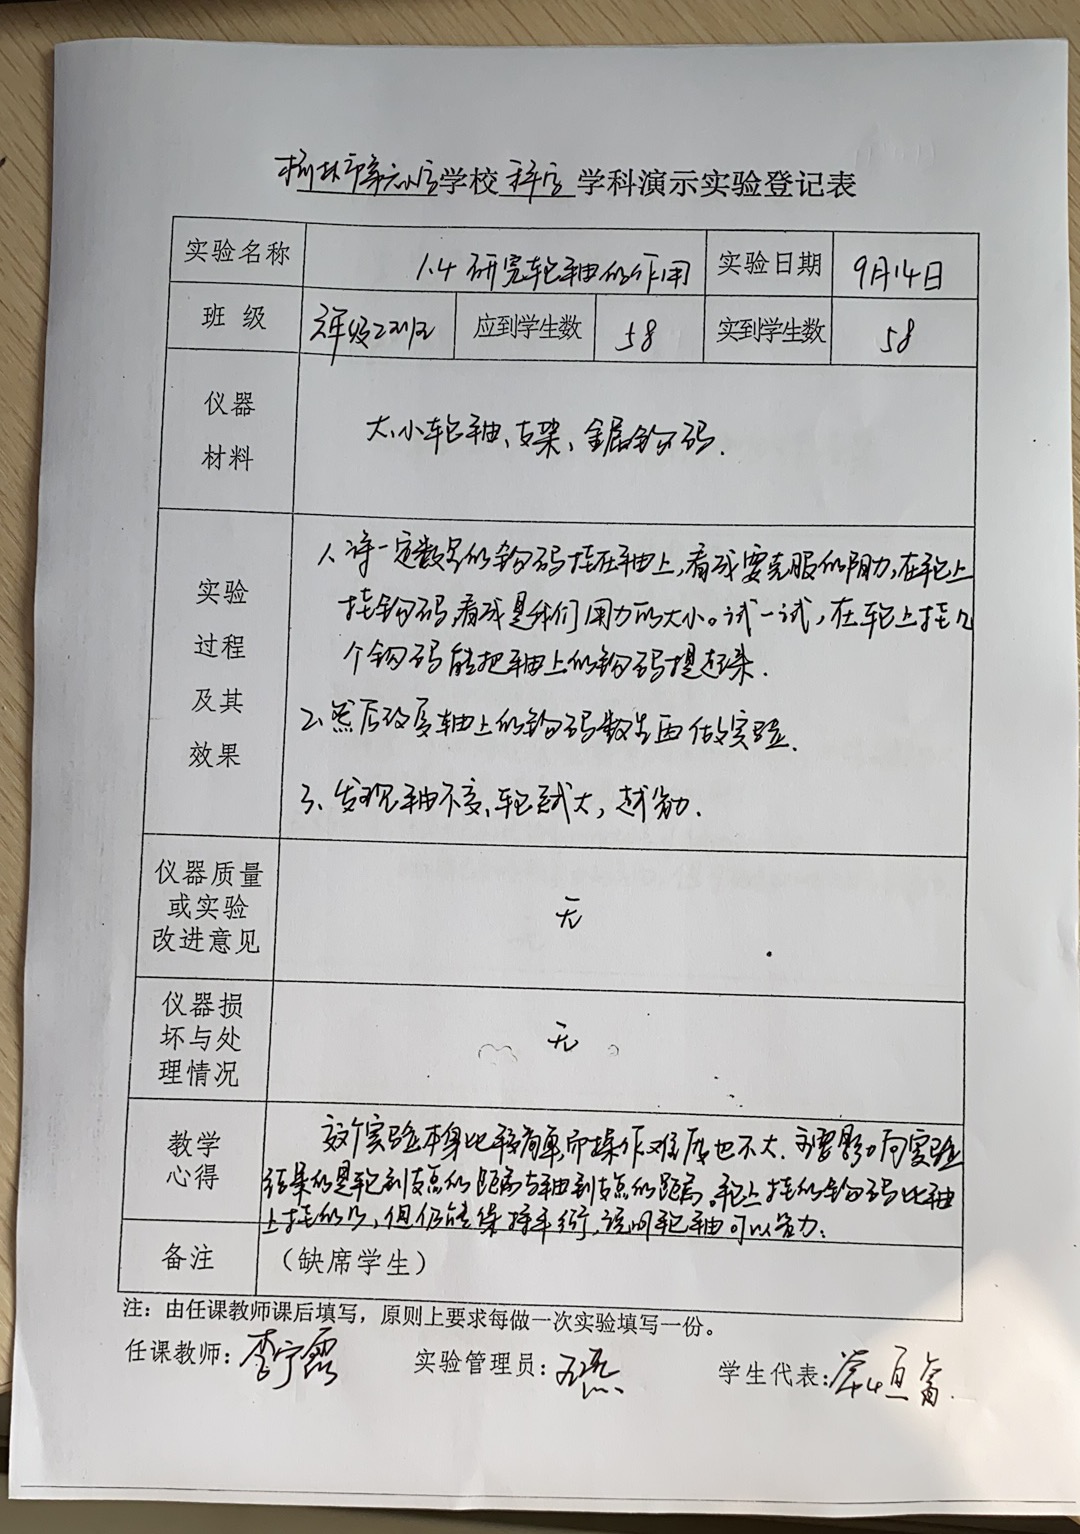 榆林市第六小学学校 科学 学科演示实验登记表
实验名称 1.4 研究轮轴的作用 实验日期 9月14日
班 级 六年级 班 应到学生数 58 实到学生数 58
仪器
材料
大、小轮轴、支架、金属钩码.
实验
过程
及其
效果
1、将一定数量的钩码挂在轴上,看成要克服的阻力,在轮上
挂钩码,看成是我们用力的大小。试一试,在轮上挂几
个钩码能把轴上的钩码提起来.
2、然后改变轴上的钩码数量再做实验.
3、发现轴不变,轮越大,越省力.
仪器质量
或实验
改进意见
无
仪器损
坏与处
理情况
无
教学
心得
这个实验本身比较简单,而操作难度也不大.主要影响实验
结果的是轮到支点的距离与轴到支点的距离.轮上挂的钩码比轴
上挂的少,但仍能保持平衡,说明轮轴可以省力.
备注 (缺席学生)
注:由任课教师课后填写,原则上要求每做一次实验填写一份。
任课教师:李宁霞 实验管理员: 学生代表: